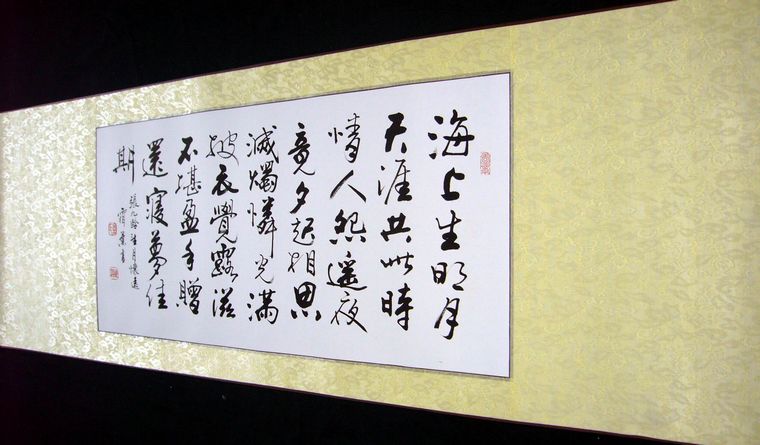 海上生明月
天涯共此時
情人怨遥夜
竟夕起相思
滅燭憐光滿
披衣覺露滋
不堪盈手贈
還寝夢佳
期
張九齡望月懷遠